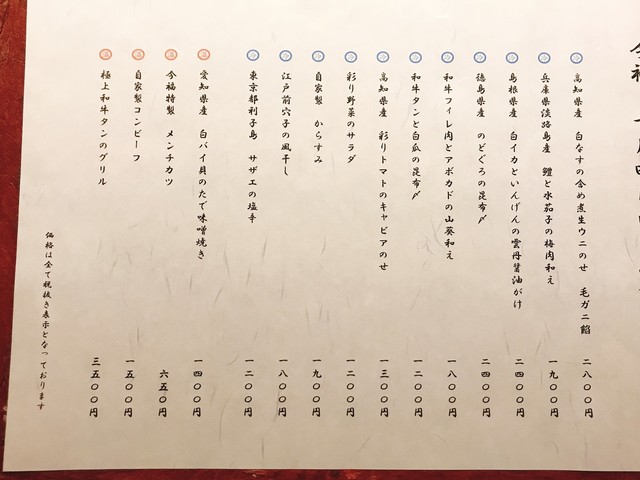 冷 高知県産 白なすの含め煮生ウニのせ 毛ガニ餡 二八〇〇円
冷 兵庫県淡路島産 鱧と水茄子の梅肉和え 一九〇〇円
冷 島根県産 白イカといんげんの雲丹醤油がけ 二四〇〇円
冷 徳島県産 のどぐろの昆布〆 二四〇〇円
冷 和牛フィレ肉とアボカドの山葵和え 一八〇〇円
冷 和牛タンと白瓜の昆布〆 一二〇〇円
冷 高知県産 彩りトマトのキャビアのせ 一三〇〇円
冷 彩り野菜のサラダ 一二〇〇円
冷 自家製 からすみ 一九〇〇円
冷 江戸前穴子の風干し 一八〇〇円
冷 東京都利子島 サザエの塩辛 一二〇〇円
温 愛知県産 白バイ貝のたで味噌焼き 一四〇〇円
温 今福特製 メンチカツ 六五〇円
温 自家製コンビーフ 一五〇〇円
温 極上和牛タンのグリル 三五〇〇円
価格は全て税抜き表示となっております